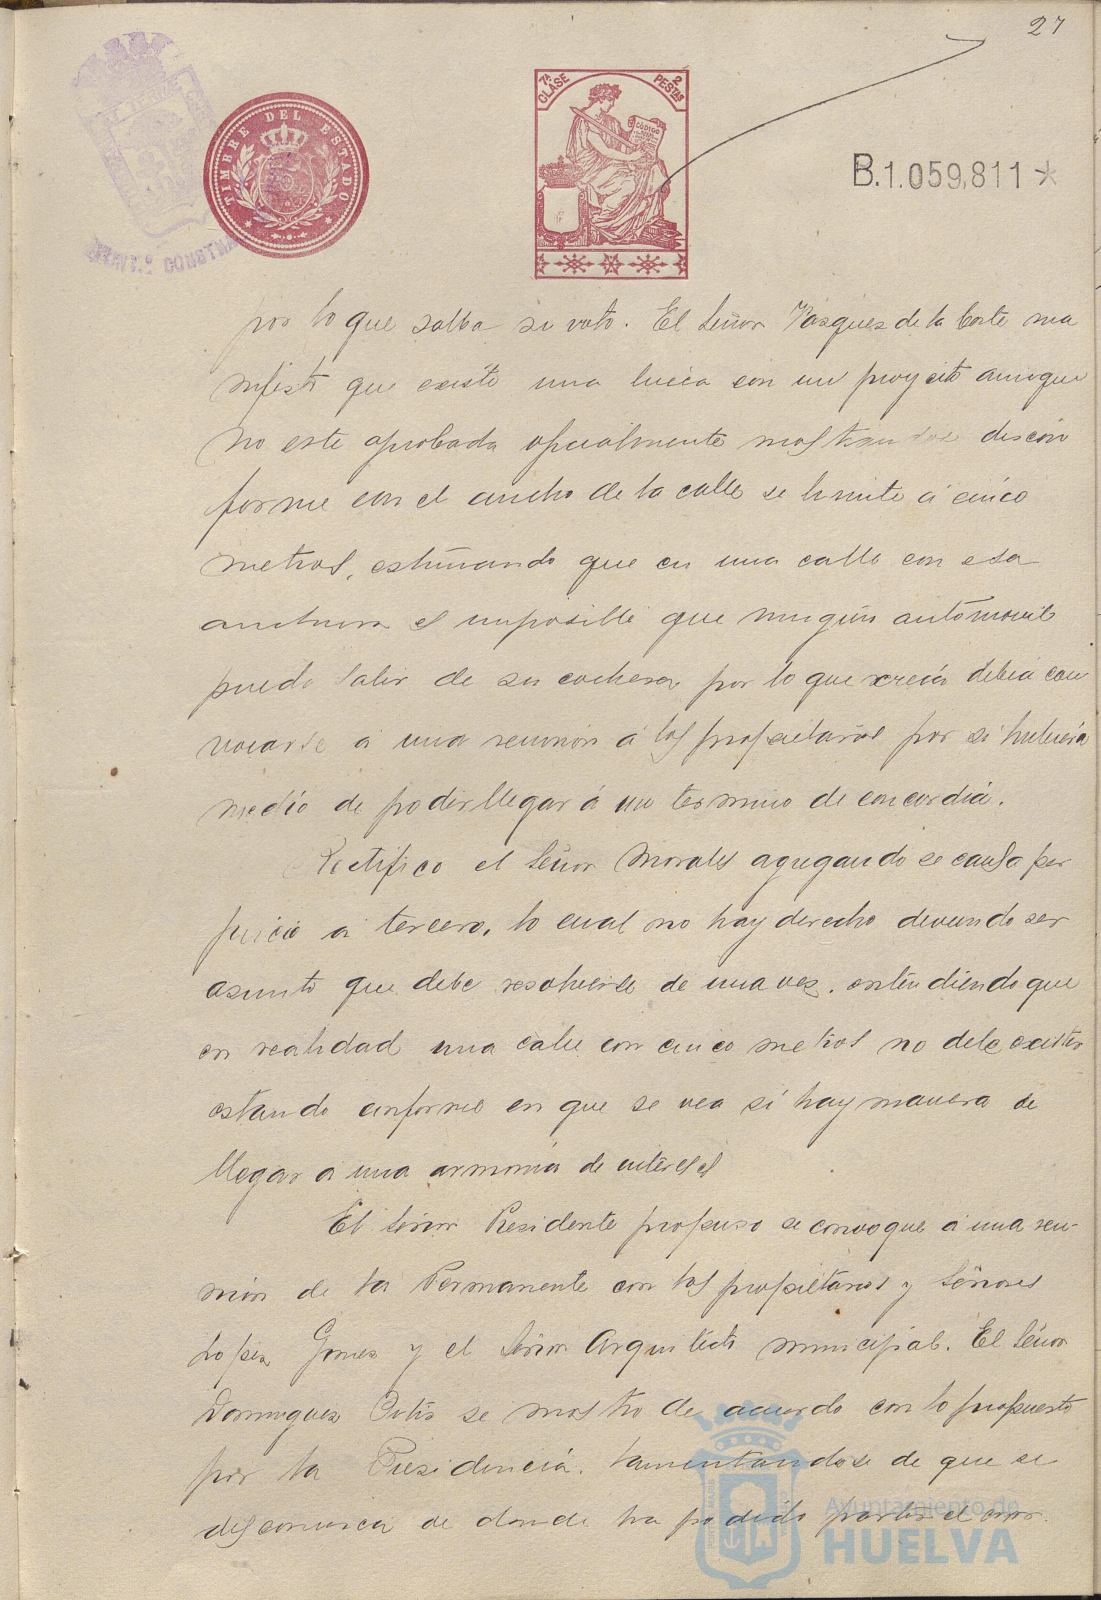 27
7ª CLASE
2 PESTAS
CÓDIGO
TIMBRE DEL ESTADO
B.1.059,811
por lo que salba su voto. El Señor Vásquez de la Corte ma
nifestó que existe una linea con un proyecto aunque
no este aprobada oficialmente mostrandose discon
forme con el ancho de la calle se limite á cinco
metros, estimando que en una calle con esa
anchura es imposible que ningún automovil
pueda salir de su cochera por lo que creia debia con
vocarse á una reunion á los propietarios por si hubiera
medio de poder llegar á un termino de concordia.
Rectifico el Señor Morales agregando se causa per
juicio a tercero, lo cual no hay derecho deviendo ser
asunto que debe resolverse de una vez, entendiendo que
en realidad una calle con cinco metros no debe existir
estando conforme en que se vea si hay manera de
llegar a una armonia de intereses
El Señor Presidente propuso se convoque á una reu-
nion de la Permanente con los propietarios y Señores
Lopez Gomez y el Señor Arquitecto municipal. El Señor
Dominguez Ortis se mostro de acuerdo con lo propuesto
por la Presidencia, lamentandose de que se
desconozca de donde ha podido partir el error.
Ayuntamiento de
HUELVA